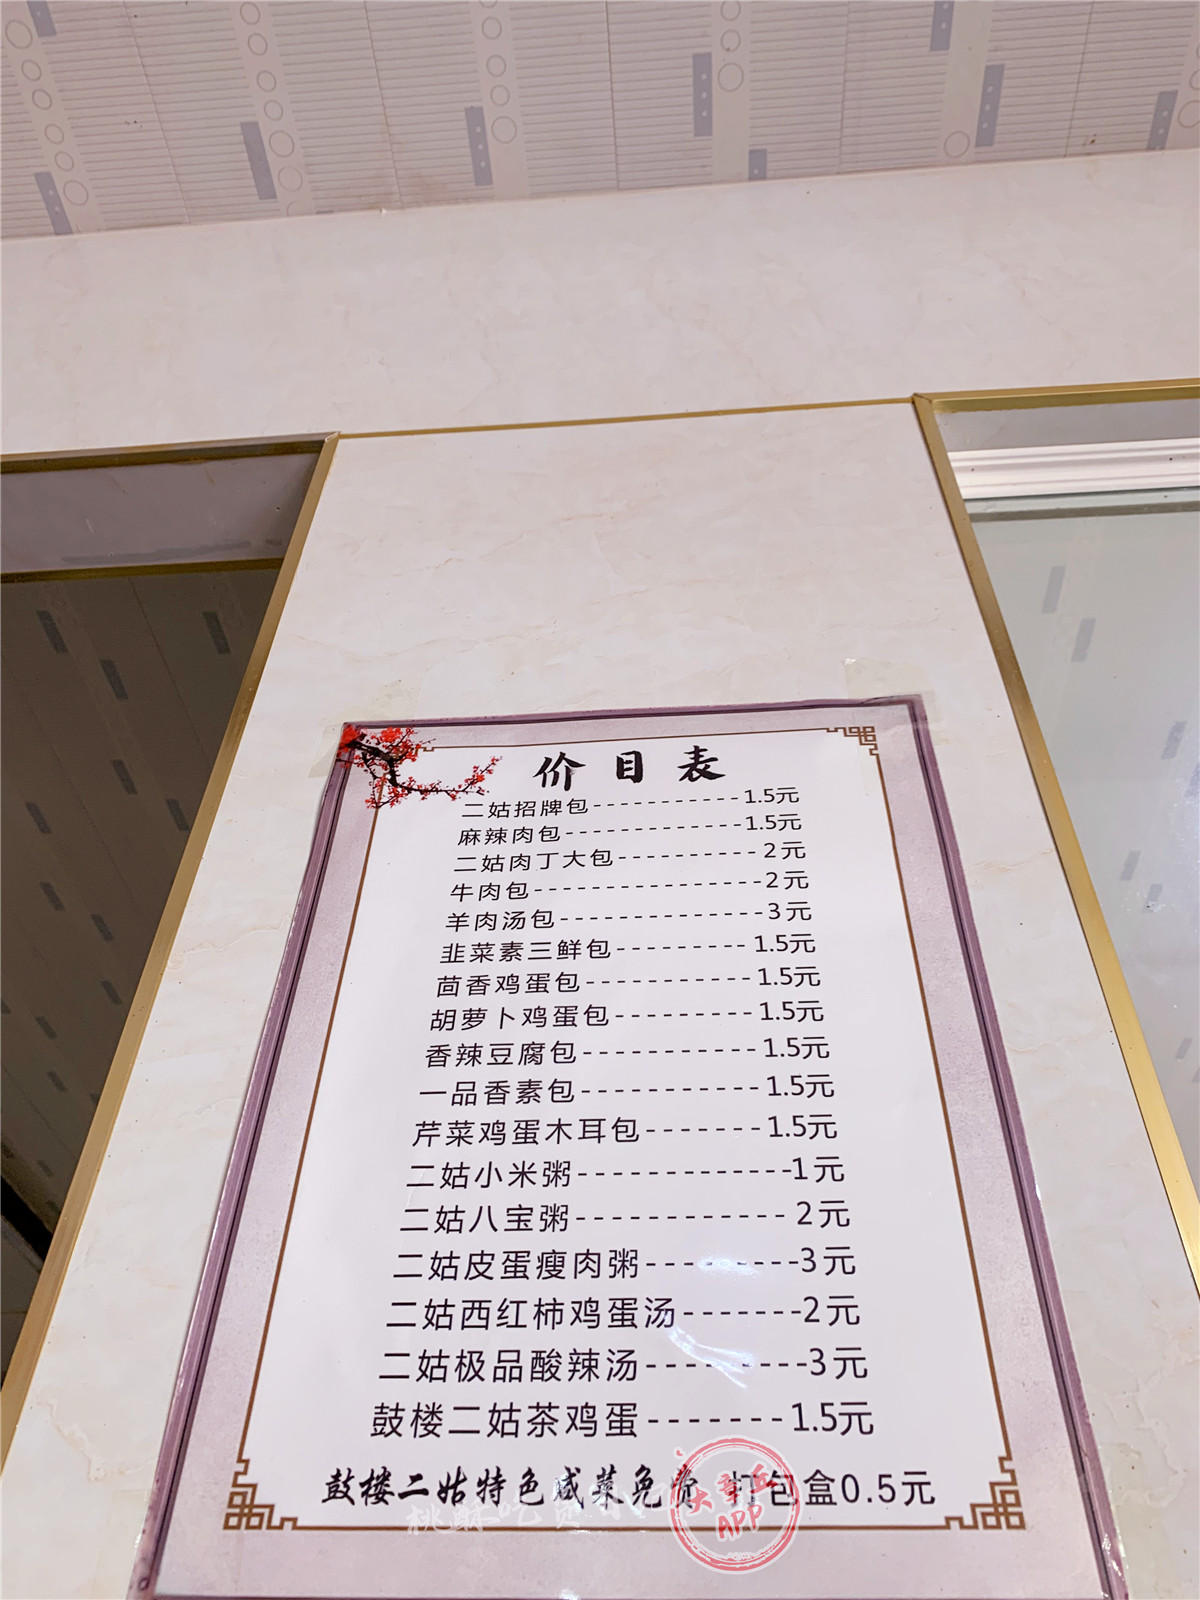 价目表
二姑招牌包-----------1.5元
麻辣肉包-------------1.5元
二姑肉丁大包----------2元
牛肉包-----------------2元
羊肉汤包--------------3元
韭菜素三鲜包---------1.5元
茴香鸡蛋包-----------1.5元
胡萝卜鸡蛋包---------1.5元
香辣豆腐包-----------1.5元
一品香素包-----------1.5元
芹菜鸡蛋木耳包-------1.5元
二姑小米粥-------------1元
二姑八宝粥------------2元
二姑皮蛋瘦肉粥---------3元
二姑西红柿鸡蛋汤-------2元
二姑极品酸辣汤---------3元
鼓楼二姑茶鸡蛋-------1.5元
鼓楼二姑特色咸菜免费 打包盒0.5元
桃酥吃
大章丘
APP